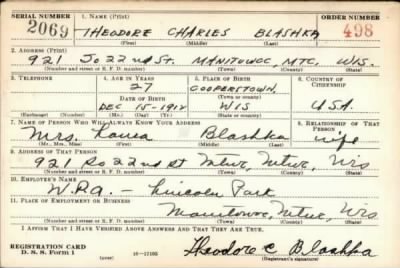 SERIAL NUMBER 1. NAME (Print) ORDER NUMBER
2069 THEODORE CHARLES BLASHKA 498
(First) (Middle) (Last)
2. ADDRESS (Print)
921 So 22nd St. MANITOWOC, MTC, WIS.
(Number and street or R. F. D. number) (Town) (County) (State)
3. TELEPHONE 4. AGE IN YEARS 5. PLACE OF BIRTH 6. COUNTRY OF CITIZENSHIP
27 COOPERSTOWN,
DATE OF BIRTH (Town or county)
DEC 15-1912 WIS U.S.A.
(Exchange) (Number) (Mo.) (Day) (Yr.) (State or country)
7. NAME OF PERSON WHO WILL ALWAYS KNOW YOUR ADDRESS 8. RELATIONSHIP OF THAT PERSON
Mrs. Blashka wife
(Mr., Mrs., Miss) (First) (Middle) (Last)
9. ADDRESS OF THAT PERSON
921 So 22nd St Wis
(Number and street or R. F. D. number) (Town) (County) (State)
10. EMPLOYER'S NAME
W.P.A. – Lincoln Park
11. PLACE OF EMPLOYMENT OR BUSINESS
Manitowoc, Wis
(Number and street or R. F. D. number) (Town) (County) (State)
I AFFIRM THAT I HAVE VERIFIED ABOVE ANSWERS AND THAT THEY ARE TRUE.
REGISTRATION CARD
D. S. S. Form 1 (over) 16—17105 Theodore C Blashka
(Registrant's signature)